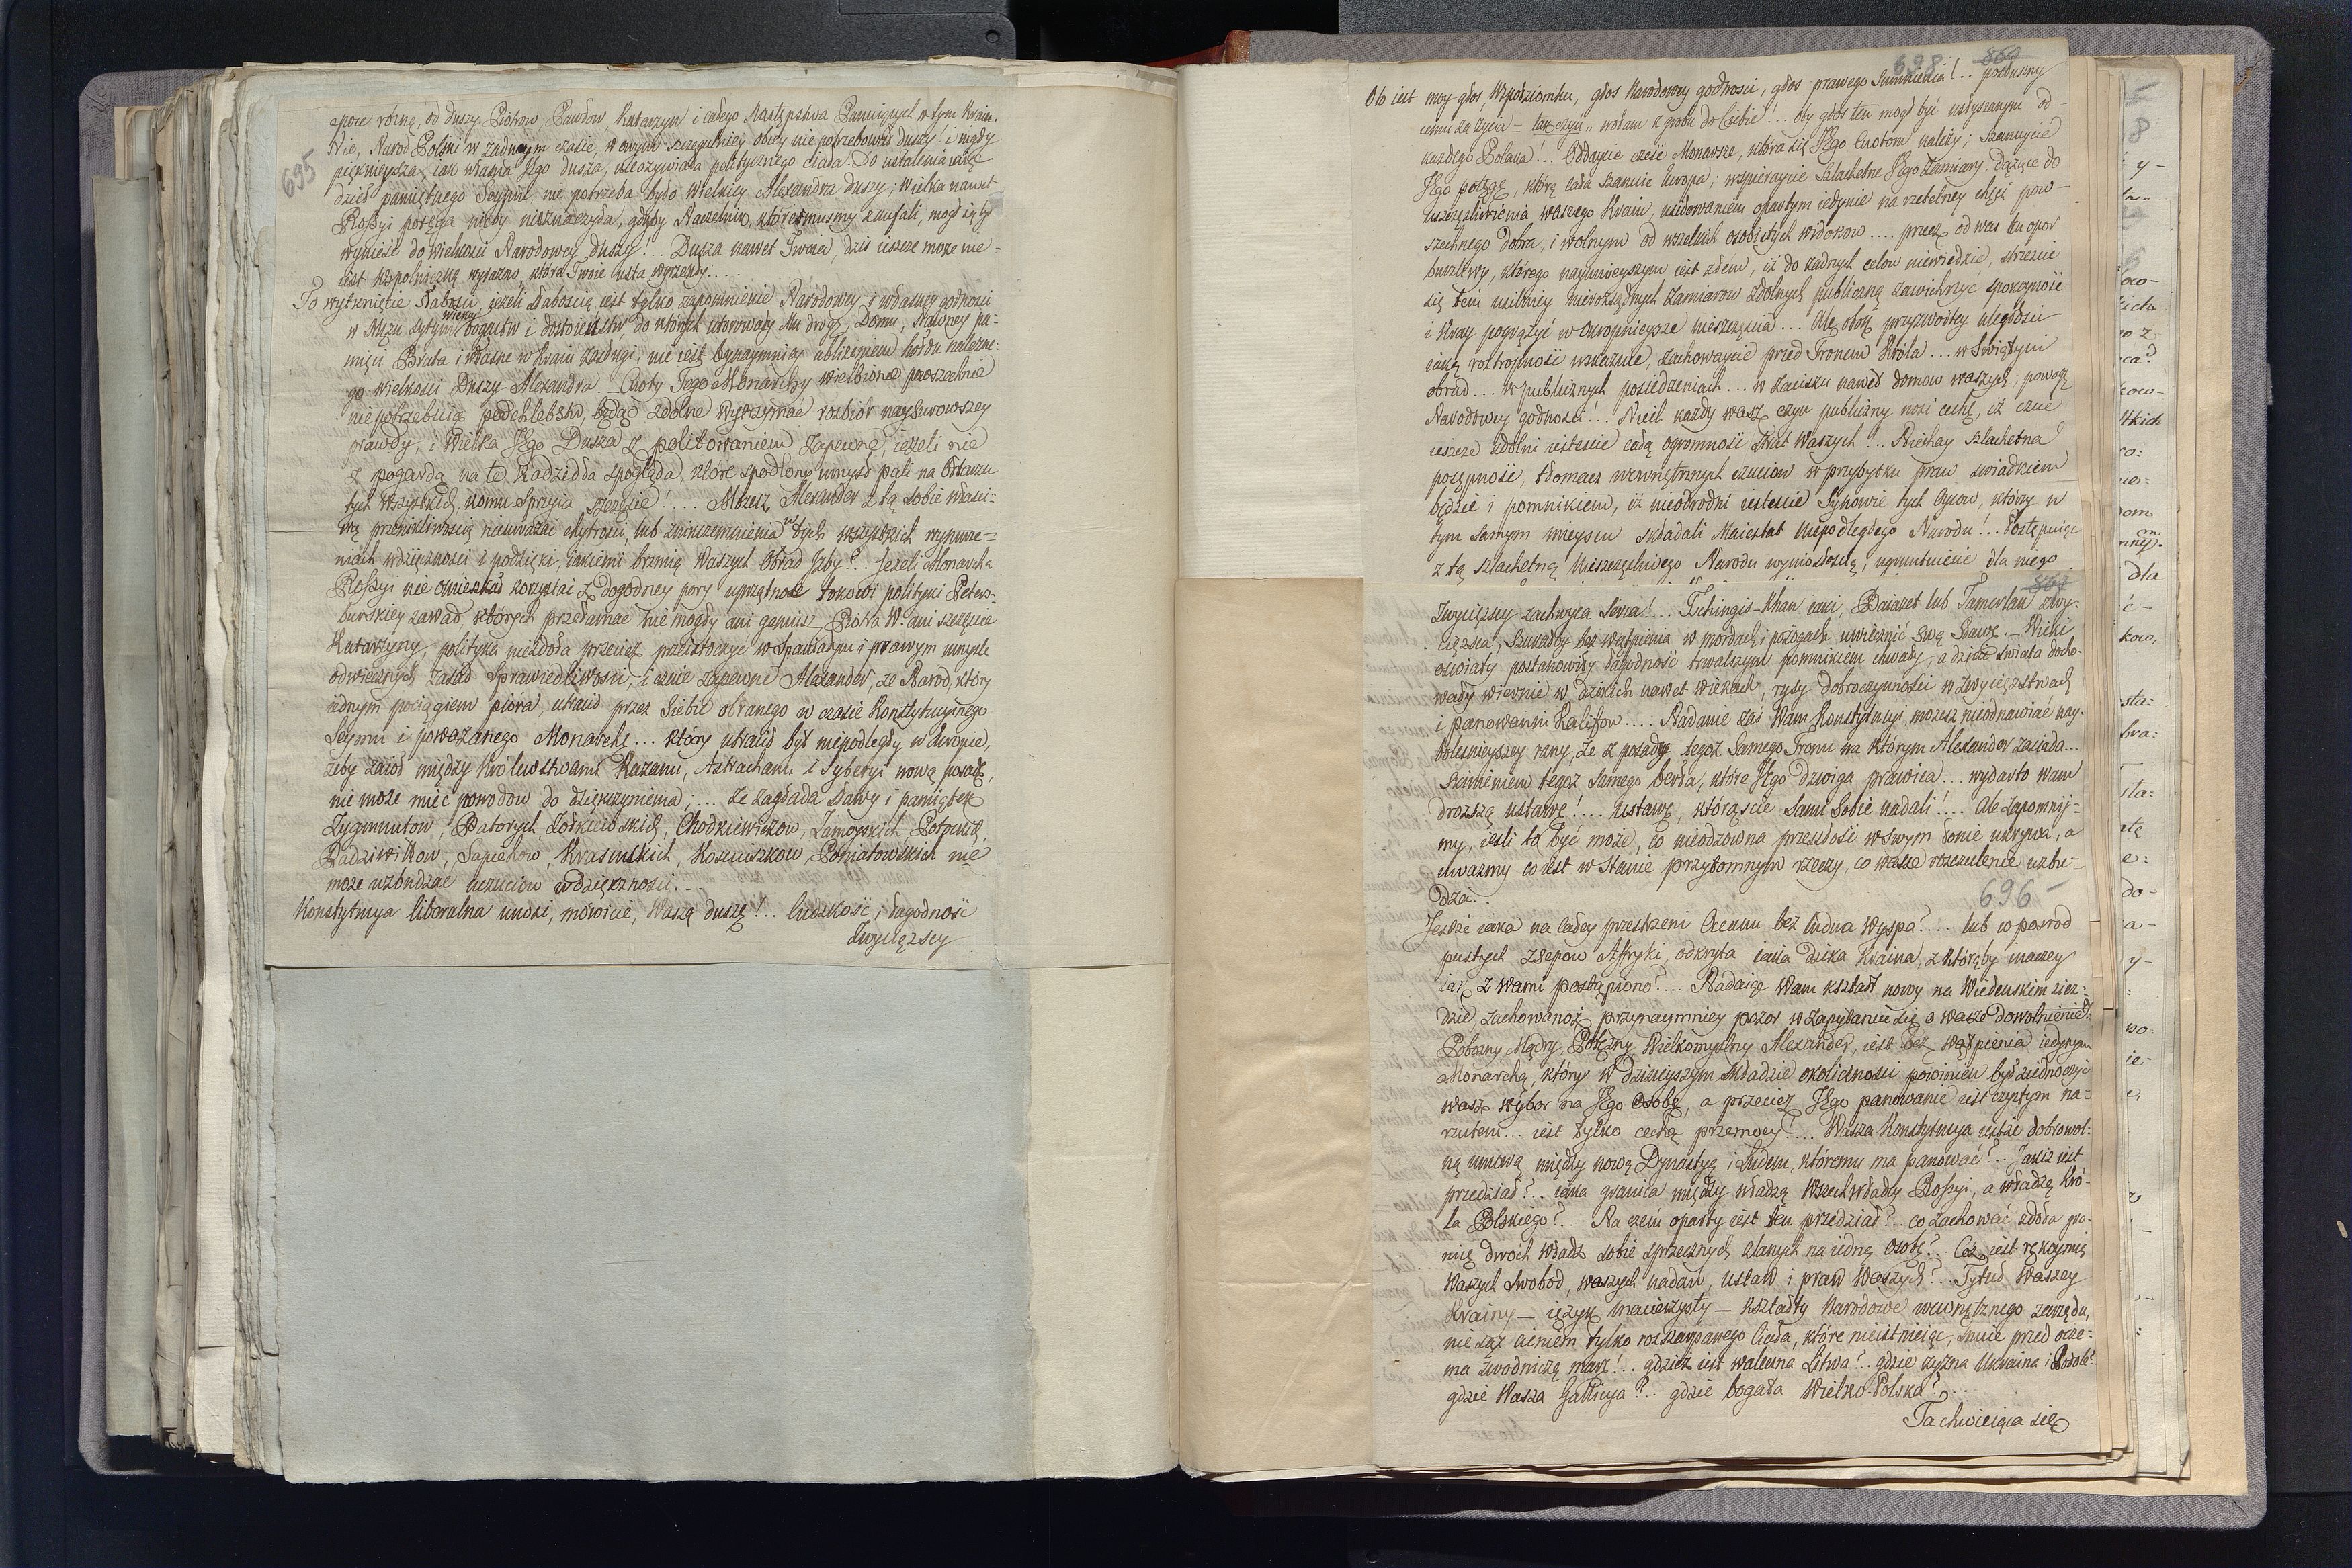 695
epoce różnę, od duszy Piotrow Pawłow Katarzyn i całego Następstwa Panuiących w tym Kraiu.
Nie, Narod Polski w żadnym czasie, w owym szczegulniey obcey nie potrzebował duszy! i nigdy
pięknieysza, iak własna Jego dusza, nieożywiała politycznego ciała. Do ustalenia więc
dzieł pamiętnego Seymu, nie potrzeba było Wielkiey Alexandra duszy; Wielka nawet
Rossyi potęga nicby nieznaczyła, gdyby Naczelnik, któremusmy zaufali, mogł się był
wynieść do Wielkości Narodowey duszy!... Dusza nawet Twoia, dziś ieszcze może nie-
iest wspolniczką wyrazow, które Twoie usta wyrzekły....
To wytknięcie słabości, ieżeli słabością iest tylko zapomnienie Narodowey i własney godności
wieku
w Mężu sytym bogactw i dostoieństw do których utorowały Mu drogę, Domu, sławney pa-
mięci Brata i własne w Kraiu zasługi, nie iest bynaymniey ubliżeniem hołdu należne-
go Wielkości Duszy Alexandra _ Cnoty Tego Monarchy wielbione powszechnie
niepotrzebuią pochlebstw, będąc zdolne wytrzymać rozbiór naysurowszey
prawdy, i Wielka Jego Dusza z politowaniem zapewne, ieżeli nie
z pogardą na te Kadzidła spogląda, które spodlony umysł pali na Ołtarzu
tych wszystkich, komu sprzyia szczęście!.... Możesz Alexander z tą sobie właści-
wą przenikliwością nieuważać chytrości, lub znikczemnienia w tych wszystkich wynurze-
niach wdzięczności i podzięki, iakiemi brzmią Waszych Obrad Izby?... Jeżeli Monarcha
Rossyi nie omieszkał korzystać z dogodney pory uprzątnąć tokowi polityki Peters-
burskiey zawad, których przełamać nie mogły ani geniusz Piotra W. ani szczęście
Katarzyny, polityka niezdoła przecież przeistoczyć w Spaniałym i prawym umyśle
odwiecznych zasad Sprawiedliwości, i czuie zapewne Alexander, że Narod, który
iednym pociągiem pióra, utracił przez Siebie obranego w czasie Konstytucyinego
Seymu i poważanego Monarchę... który utracił byt niepodległy w Europie,
żeby zaiął między Krolewstwami Kazanu, Astrachanu i Syberyi nową posadę,
nie może mieć powodow do dziękczynienia;... że zagłada sławy i pamiątek
Zygmuntow, Batorych Żołkiewskich, Chodkiewiczow, Zamoyskich Potockich
Radziwiłłow, Sapiehow, Krasinskich, Kosciuszkow Poniatowskich nie
może wzbudzać uczuciow wdzięczności.
Konstytucya liberalna unosi, mówicie, Waszą duszę!.. ludzkość i łagodność
Zwycięzcy
698 869
Oto iest moy głos, Wspołziomku, głos Narodowey godności, głos prawego Sumnienia!.. posłuszny
iemu za życia _ tak czyń „ wołam z grobu do Ciebie!... Oby głos ten mogł być usłyszanym od-
każdego Polaka!... Oddaycie cześć Monarsze, która się Jego Cnotom należy; Szanuycie
Jego potęgę, którą cała szanuie Europa; wspieraycie Szlachetne Jego Zamiary, dążące do
uszczęśliwienia waszego Kraiu, usiłowaniem opartym iedynie na rzetelney chęci pow-
szechnego dobra, i wolnym od wszelkich osobistych widokow.... precz od was ten opor
burzliwy, którego naymnieyszym iest złem, iż do żadnych celow niewiedzie, strzeżcie
się tem usilniey nierozsądnych zamiarow zdolnych publiczną zawichrzyć spokoyność
i Kray pogrążyć w okropnieysze nieszczęścia... Ale obok przyzwoitey uległości
iaką rostropność wskazuie, zachowaycie przed Tronem Króla... w Swiątyni
obrad... w publicznych posiedzeniach... w zaciszu nawet domow waszych, powagę
Narodowey godności!... Niech każdy wasz czyn publiczny nosi cechę, iż czuć
ieszcze zdolni iesteście całą ogromność strat Waszych!.. Niechay szlachetna
posępność, tłomacz wewnętrznych czuciow w przybytku praw swiadkiem
będzie i pomnikiem, iż nieodrodni iesteście Synowie tych Oycow, którzy w
tym samym mieyscu składali Maiestat Niepodległego Narodu!.. Postępuiąc
z tą szlachetną Nieszczęśliwego Narodu wyniosłością, ugruntuiecie dla niego
867
Zwycięzcy zachwyca Serca!... Tschingis-Khan iaki, Baiazet lub Tamerlan zwy-
cięzca, szukałby bez wątpienia w mordach i pożogach uwiecznić swą Sławę. _ Wieki
oswiaty postanowiły łagodność trwalszym pomnikiem chwały, a dzieie świata docho-
wały wiernie w dzikich nawet Wiekach, rysy dobroczynności w Zwycięzstwach
i panowaniu Kalifow.... Nadanie zaś Wam Konstytucyi, możesz nieodnawiać nay-
boleśnieyszey rany, że z posady tegoż samego Tronu na którym Alexander zasiada...
Skinieniem tegoż samego berła, które Jego dzwiga prawica... wydarto wam
droższą ustawę!.... Ustawę, którąście Sami Sobie nadali!.... Ale zapomnij-
my, ieśli to być może, co nieodzowna przeszłość w swym łonie ukrywa, a
uważmy co iest w Stanie przytomnym rzeczy, co wasze rozczulenie wzbu-
dza...
696
Jestże iaka na całey przestrzeni Oceanu bez ludna Wyspa?.... lub w posrod
pustych Zstepow Afryki, odkryta iaka Dzika Kraina, z którąby inaczey
iak z Wami postąpiono?.... Nadaiąc Wam kształt nowy na Wiedenskim ziez-
dzie, zachowanoż przynaymniey pozor w zapytaniu się o wasze dowolnienie?
Pobożny Mądry, Potężny Wielkomyslny Alexander, iest bez wątpienia iedynym
Monarchą, który w dzisieyszym składzie okoliczności powinien był ziednoczyć
wasz wybor na Jego osobę, a przecież Jego panowanie iest czystym na-
rzutem... iest tylko cechą przemocy!.... Wasza Konstytucya iestże dobrowol-
ną umową między nową Dynastyą i Ludem, któremu ma panować?.. Jakiż iest
przedział?.. iaka granica między władzą Wszechwładzy Rossyi, a władzą Kró-
la Polskiego?.. Na czem oparty iest ten przedział?.. co zachować zdoła gra-
nicę dwóch władz sobie sprzecznych zlanych na iedną osobę?.. Coż iest rękoymią
Waszych Swobod, waszych nadań, ustaw i praw Waszych?... Tytuł Waszey
Krainy _ ięzyk Macierzysty _ kształty Narodowe wewnętrznego zarządu,
nie sąż cieniem tylko rozszarpanego Ciała, które nieistnieiąc, snuie przed ocze-
ma zwodniczą marę!.. gdzież iest waleczna Litwa?.. gdzie żyzna Ukraina i Podole?
gdzie Wasza Gallicya?.. gdzie bogata Wielko-Polska?...
Ta chwieiąca się